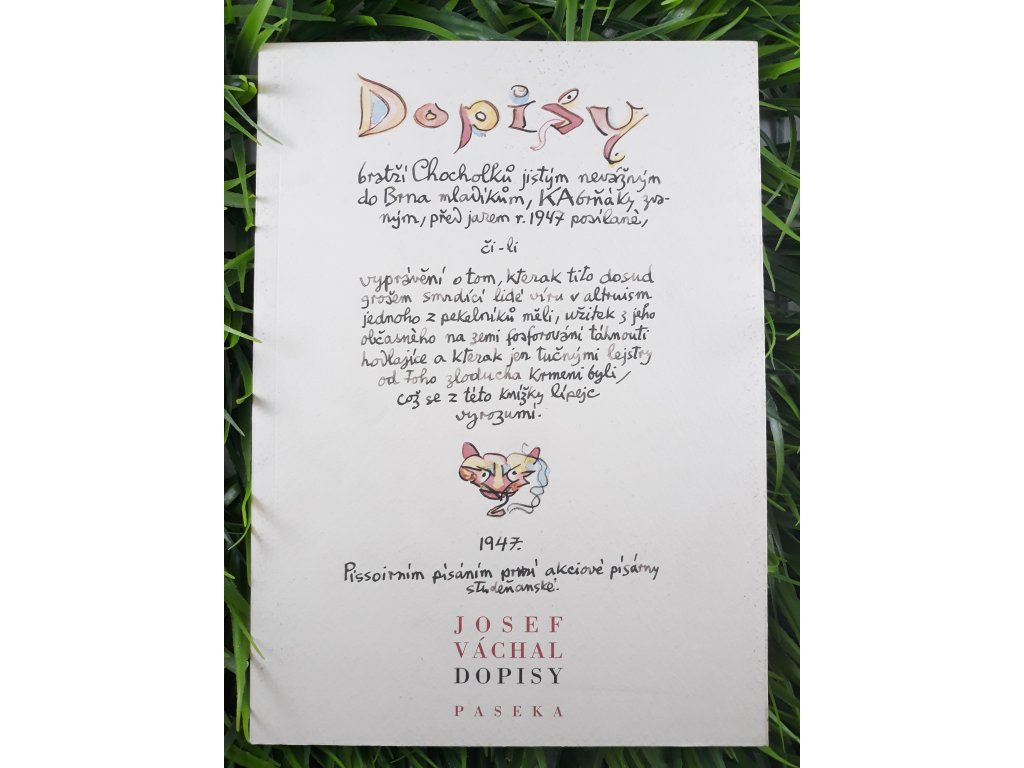 Dopisy
bratří Chocholků jistým nevážným
do Brna mladíkům, KAbrňáky zva-
ným, před jarem r. 1947 posílané,
či-li
vyprávění o tom, kterak tito dosud
grošem smrdící lidé víru v altruism
jednoho z pekelníků měli, užitek z jeho
občasného na zemi fosforování táhnouti
hodlajíce a kterak jen tučnými lejstry
od toho zloducha krmeni byli,
což se z této knížky lépejc
vyrozumí.
1947.
Pissoirním písáním první akciové písárny
studeňanské.
JOSEF
VÁCHAL
DOPISY
PASEKA